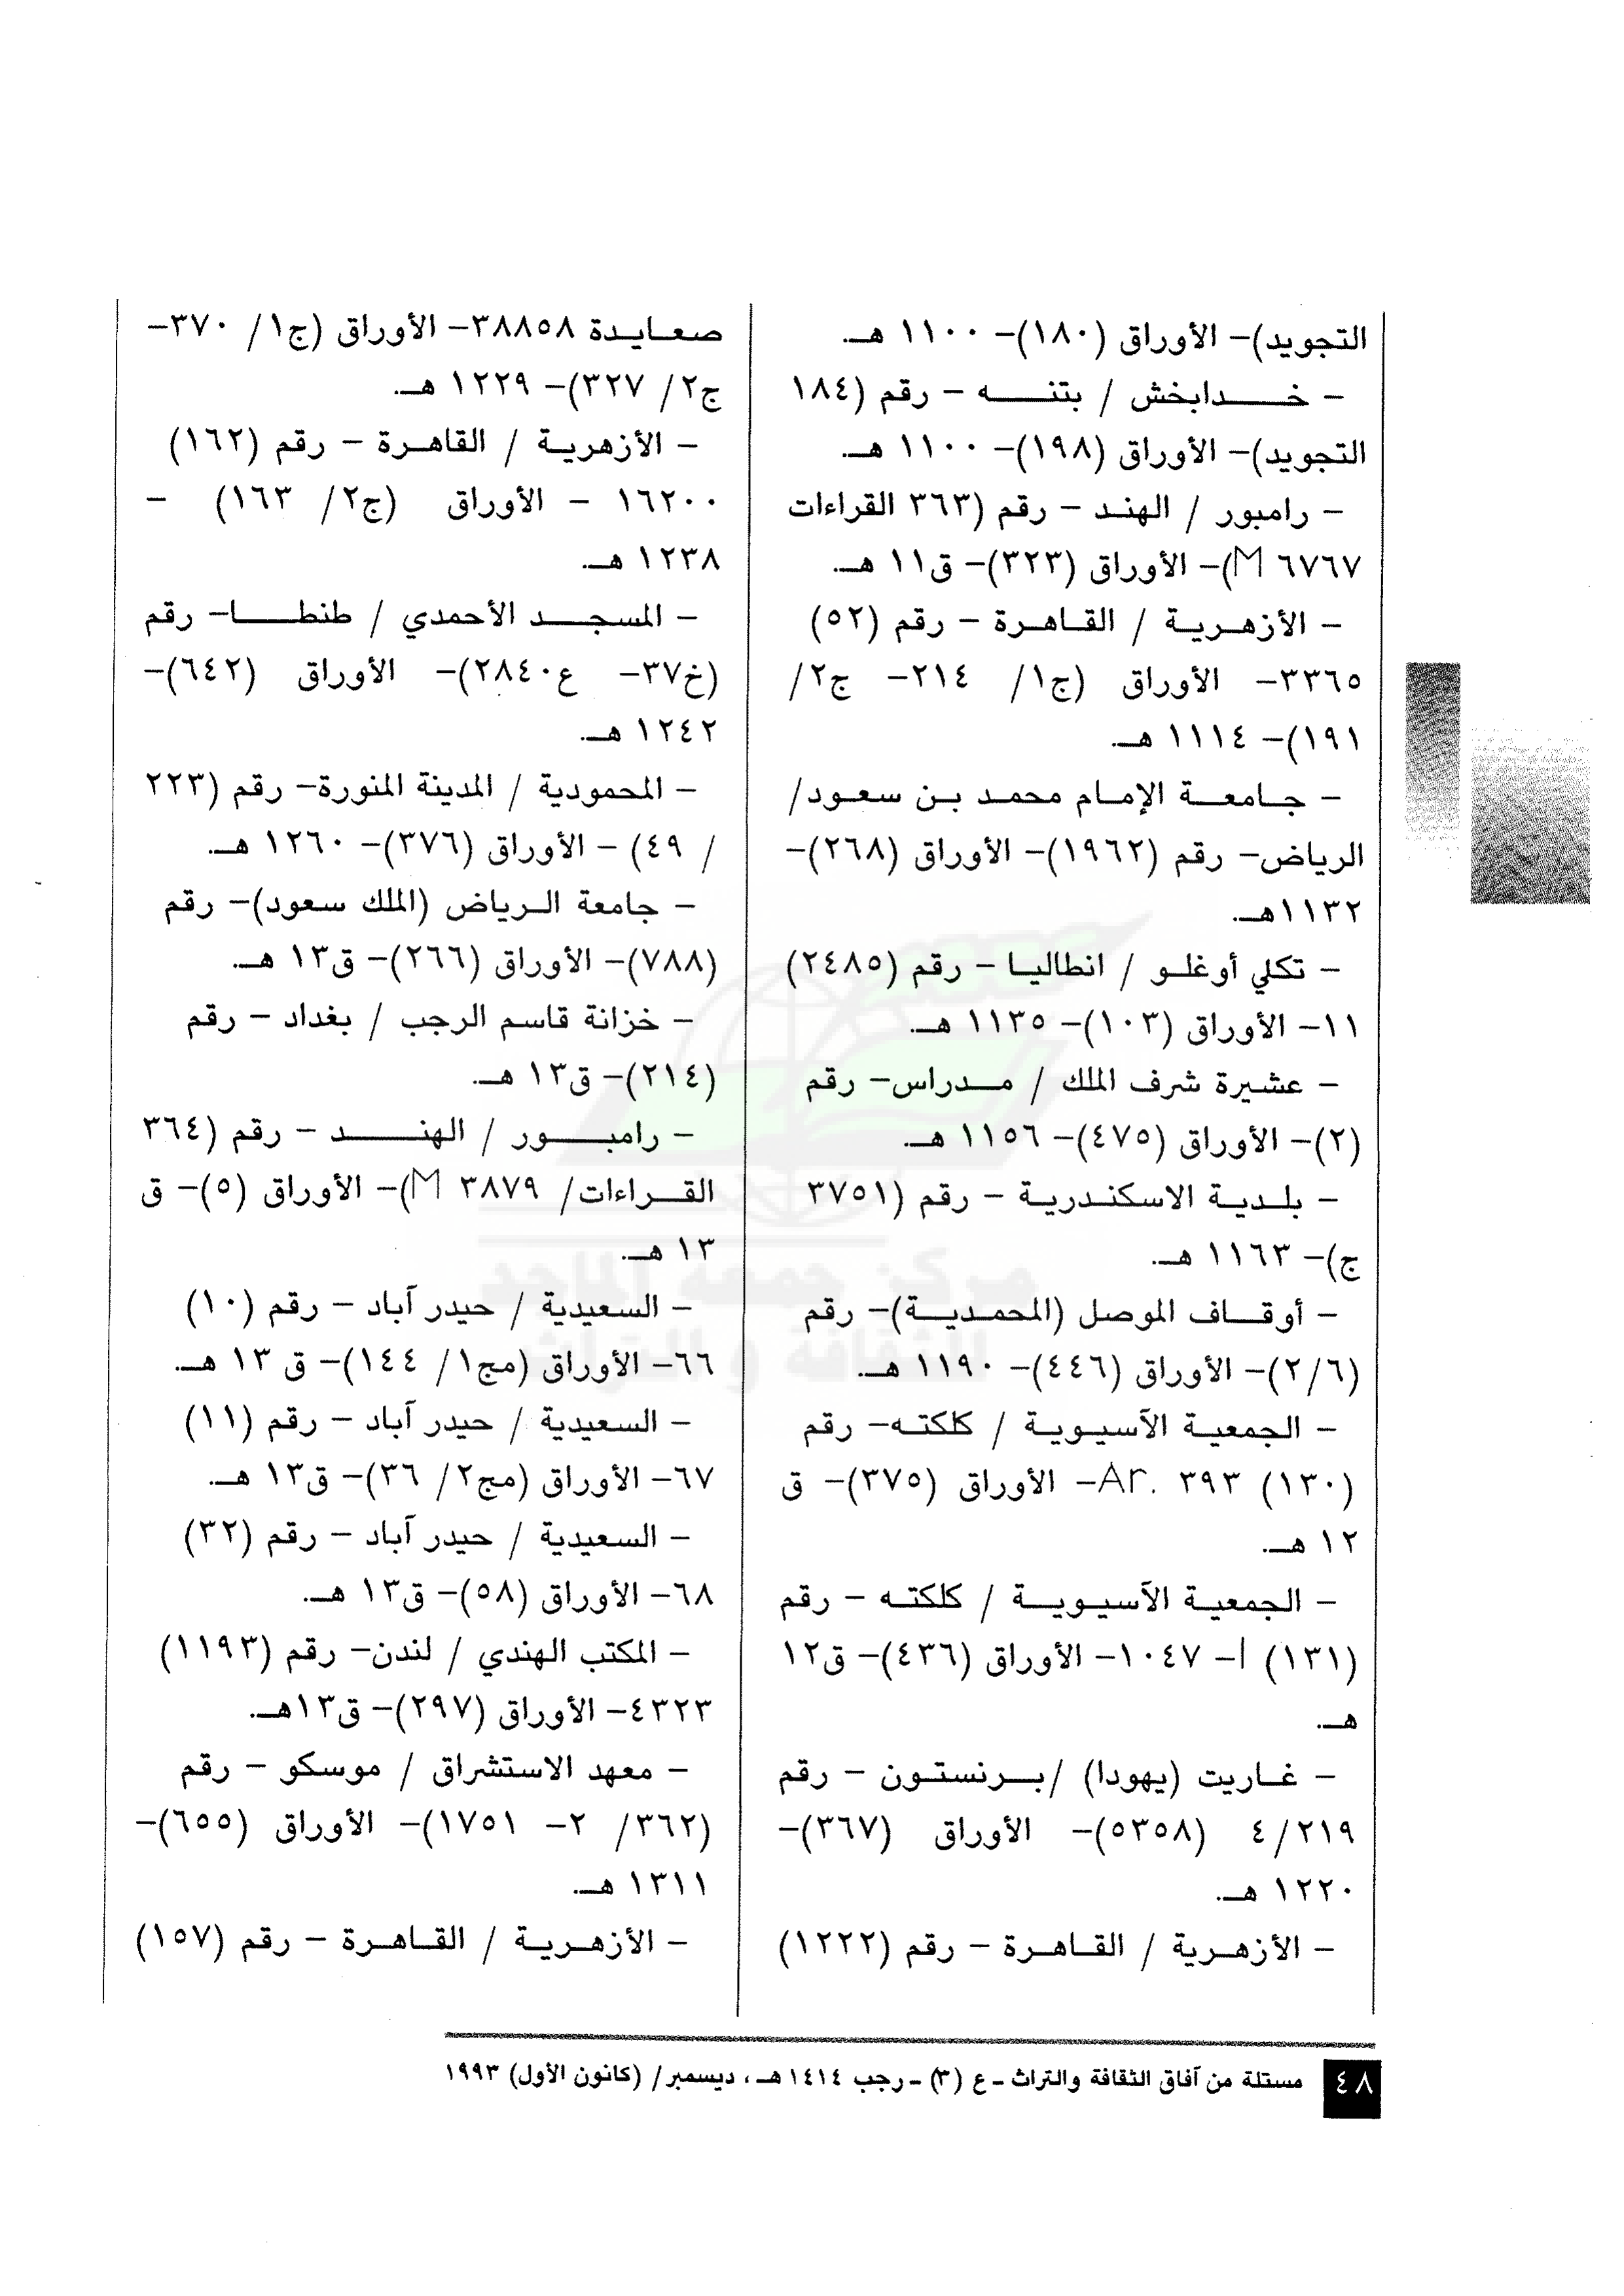 التجويد)– الأوراق (١٨٠)– ١١٠٠ هـ.
– خـــدابخش / بتنـــه – رقم (١٨٤
التجويد)– الأوراق (١٩٨)– ١١٠٠ هـ.
– رامبور / الهند – رقم (٣٦٣ القراءات
٦٧٦٧ M)– الأوراق (٣٢٣)– ق١١ هـ.
– الأزهـريـة / القـاهـرة – رقم (٥٢)
٣٣٦٥– الأوراق (ج١/ ٢١٤– ج٢/
١٩١)– ١١١٤ هـ.
– جـامعـة الإمـام محمد بـن سعـود/
الرياض– رقم (١٩٦٢)– الأوراق (٢٦٨)–
١١٣٢هـ.
– تكلي أوغلـو / انطاليـا – رقم (٢٤٨٥)
١١– الأوراق (١٠٣)– ١١٣٥ هـ.
– عشيرة شرف الملك / مـدراس– رقم
(٢)– الأوراق (٤٧٥)– ١١٥٦ هـ.
– بلـديـة الاسكنـدريـة – رقم (٣٧٥١
ج)– ١١٦٣ هـ.
– أوقـاف الموصل (المحمـديـة)– رقم
(٢/٦)– الأوراق (٤٤٦)– ١١٩٠ هـ.
– الجمعيـة الآسيـويـة / كلكتـه– رقم
(١٣٠) Ar. ٣٩٣– الأوراق (٣٧٥)– ق
١٢ هـ.
– الجمعيـة الآسيـويـة / كلكتـه – رقم
(١٣١) أ– ١٠٤٧– الأوراق (٤٣٦)– ق١٢
هـ.
– غـاريت (يهودا) /بـرنستـون – رقم
٤/٢١٩ (٥٣٥٨)– الأوراق (٣٦٧)–
١٢٢٠ هـ.
– الأزهـرية / القـاهـرة – رقم (١٢٢٢)
صعـايـدة ٣٨٨٥٨– الأوراق (ج١/ ٣٧٠–
ج٢/ ٣٢٧)– ١٢٢٩ هـ.
– الأزهريـة / القاهـرة – رقم (١٦٢)
١٦٢٠٠ – الأوراق (ج٢/ ١٦٣) –
١٢٣٨ هـ.
– المسجـد الأحمدي / طنطـا– رقم
(خ٣٧– ع٢٨٤٠)– الأوراق (٦٤٢)–
١٢٤٢ هـ.
– المحمودية / المدينة المنورة– رقم (٢٢٣
/ ٤٩) – الأوراق (٣٧٦)– ١٢٦٠ هـ.
– جامعة الـرياض (الملك سعود)– رقم
(٧٨٨)– الأوراق (٢٦٦)– ق١٣ هـ.
– خزانة قاسم الرجب / بغداد – رقم
(٢١٤)– ق١٣ هـ.
– رامبـــور / الهنـــد – رقم (٣٦٤
القـراءات/ ٣٨٧٩ M)– الأوراق (٥)– ق
١٣ هـ.
– السعيدية / حيدر آباد – رقم (١٠)
٦٦– الأوراق (مج١/ ١٤٤)– ق ١٣ هـ.
– السعيدية / حيدر آباد – رقم (١١)
٦٧– الأوراق (مج٢/ ٣٦)– ق١٣ هـ.
– السعيدية / حيدر آباد – رقم (٣٢)
٦٨– الأوراق (٥٨)– ق١٣ هـ.
– المكتب الهندي / لندن– رقم (١١٩٣)
٤٣٢٣– الأوراق (٢٩٧)– ق١٣هـ.
– معهد الاستشراق / موسكو – رقم
(٣٦٢/ ٢– ١٧٥١)– الأوراق (٦٥٥)–
١٣١١ هـ.
– الأزهـريـة / القـاهـرة – رقم (١٥٧)
مركز جمعة الماجد
للثقافة والتراث
٤٨ مستلة من آفاق الثقافة والتراث ـ ع (٣) ـ رجب ١٤١٤ هـ ، ديسمبر/ (كانون الأول) ١٩٩٣